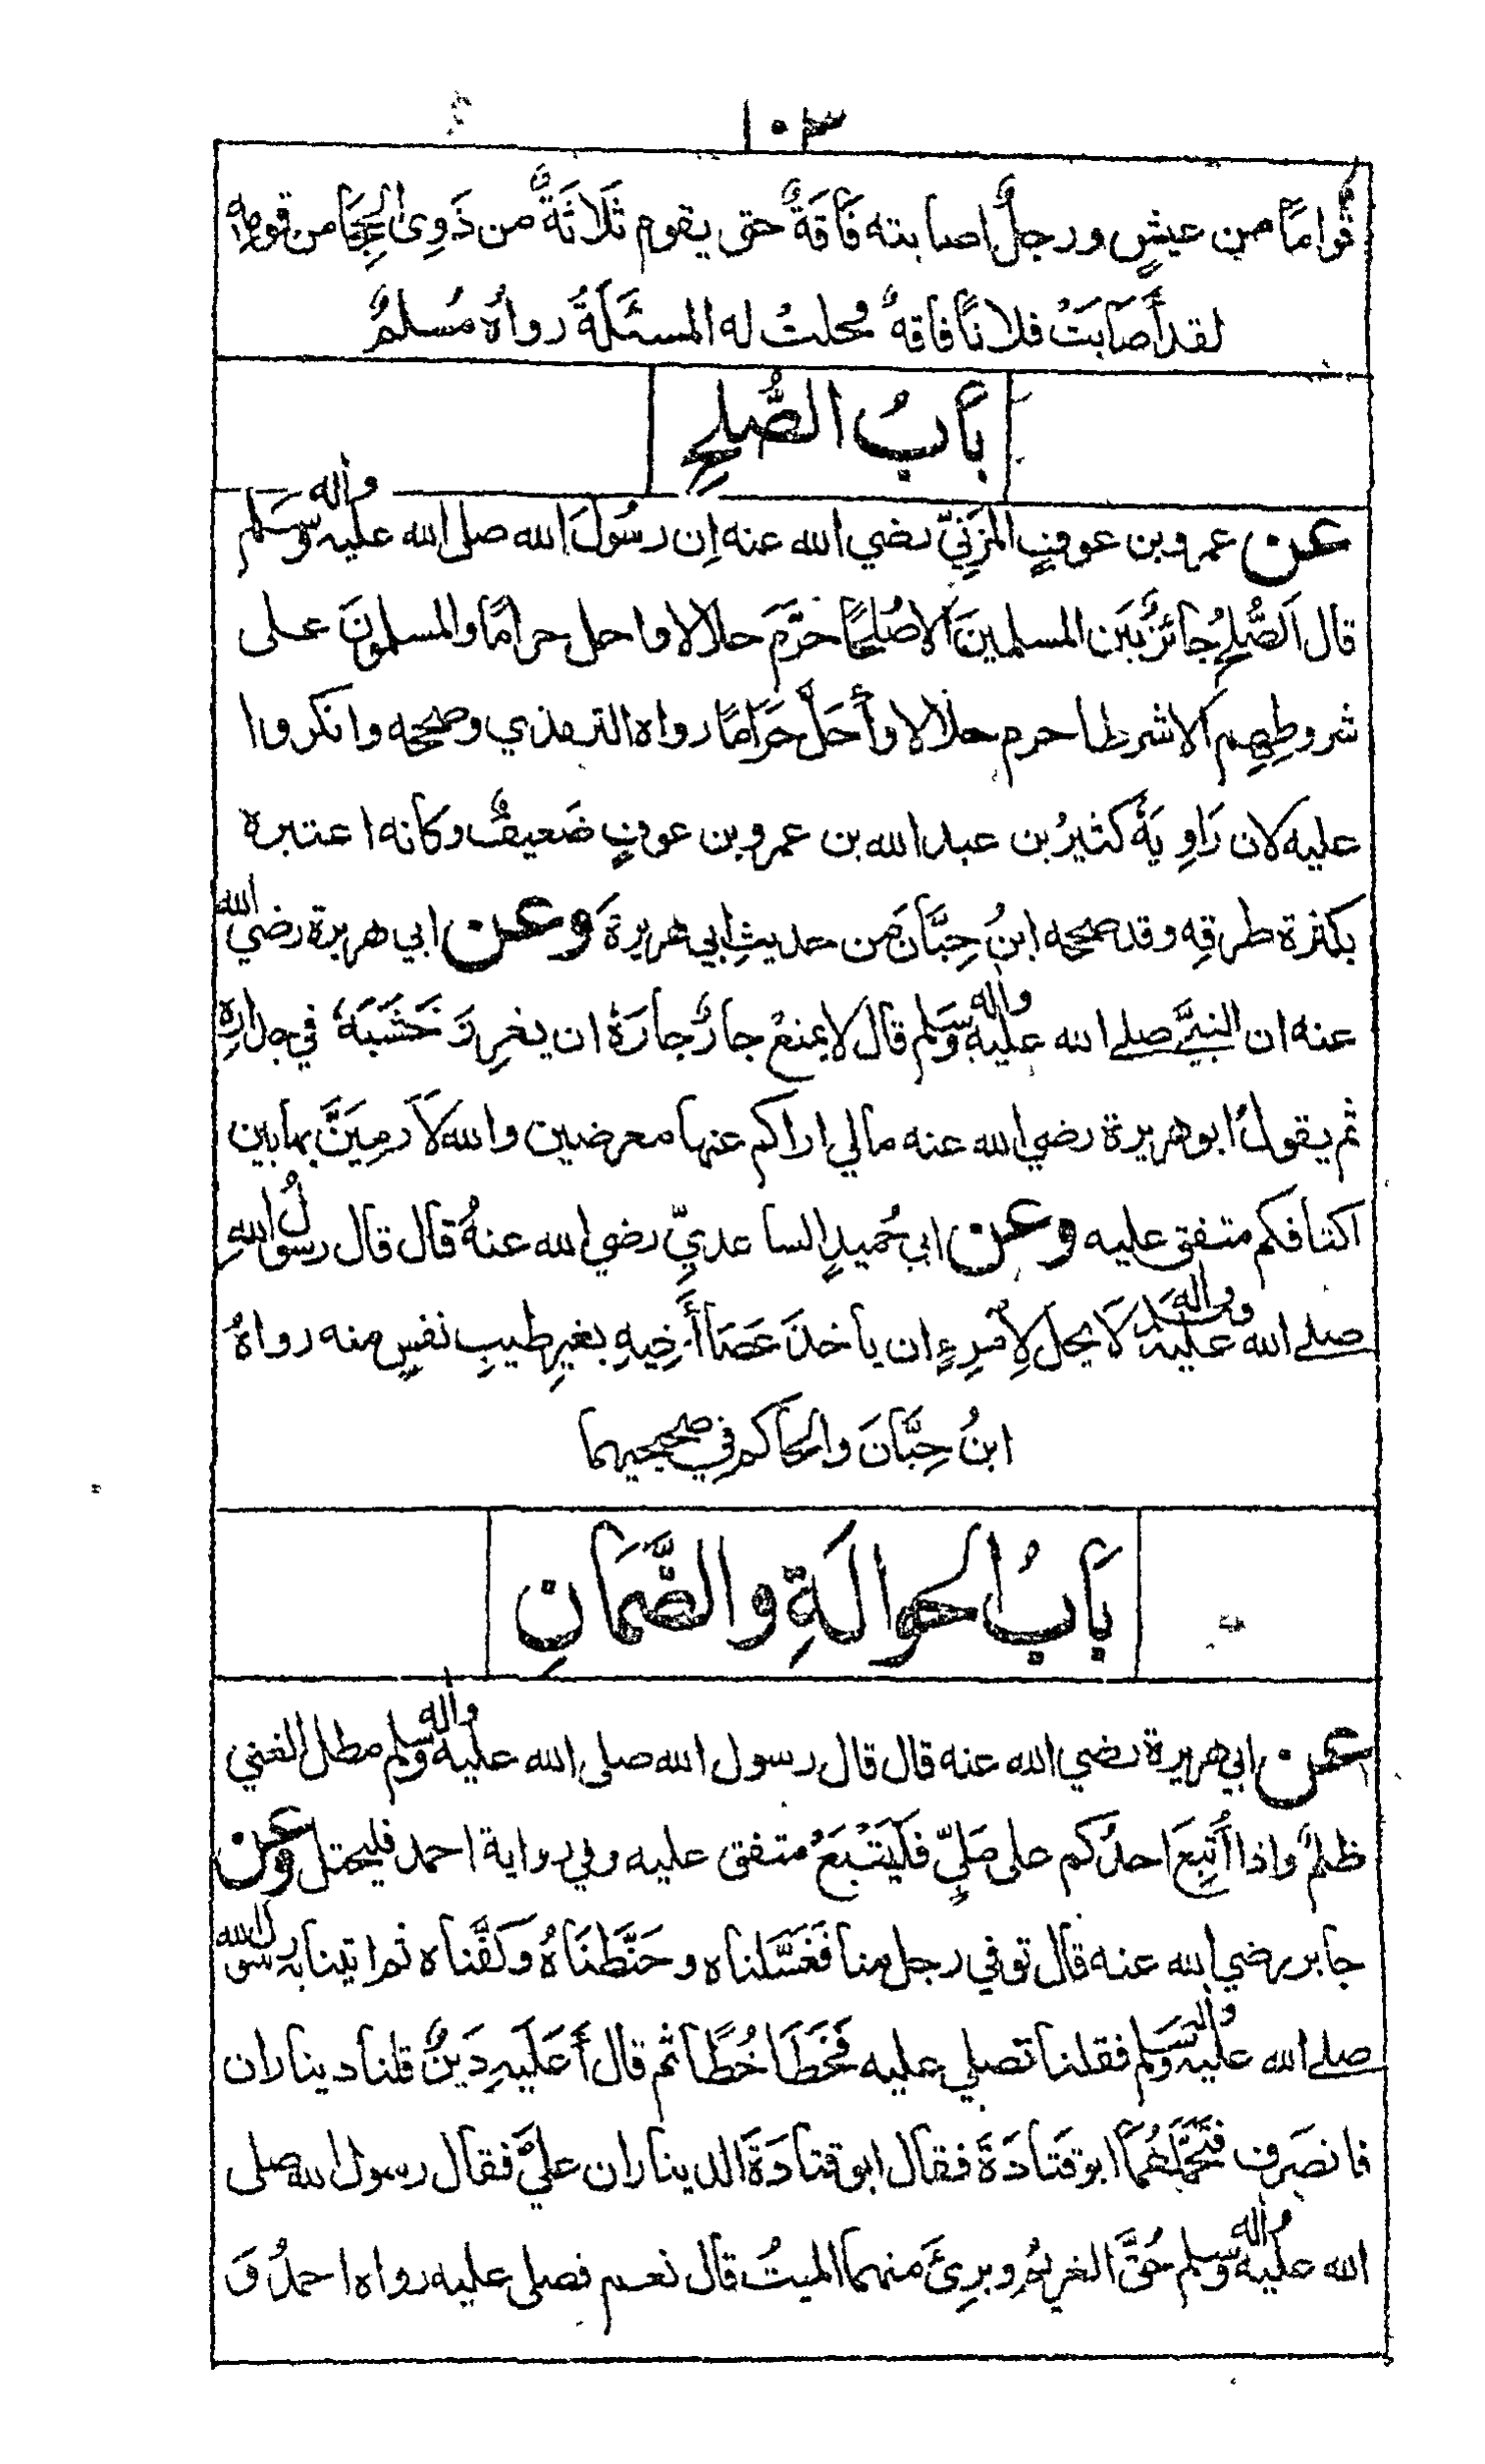 ١٠٣
قُوامًا من عيشٍ ورجلٌ اصابته فَاقَةٌ حتى يقوم ثَلَاثَةٌ من ذَوِى الحِجَا من قومِه
لقد أَصَابَتْ فلانًا فاقةٌ فحلت له المسئَلَةُ رواهُ مُسلمٌ
بَابُ الصُّلحِ
عن عمرو بن عوفٍ المزَنِيّ رضي الله عنه اِن رسُولَ الله صلى الله عليه واٰله وسَلم
قال اَلصُّلحُ جائزٌ بَيَن المسلمينَ اِلا صُلحًا حَرَّمَ حلالا او احل حرامًا والمسلمونَ على
شروطِهِم الا شرطا حرم حلالا او أَحَلَّ حَرَامًا رواه الترمذي وصححه وانكروا
عليه لان رَاوِيَهُ كثيرُ بن عبد الله بن عمرو بن عوفٍ ضَعيفٌ وكانه اعتبره
بكثرة طرقِه وقد صححه ابنُ حِبَّانَ من حديثِ ابي هريرةَ وعن ابي هريرة رضي الله
عنه ان النبيَّ صلے الله عليه واٰله وَسَلم قال لا يمنعْ جارٌ جارَهُ ان يغرِزَ خَشَبَةً في جدارِه
ثم يقولُ ابو هريرة رضي الله عنه مالي اراكم عنها معرضين والله لَأَرمِيَنَّ بها بين
اكتافكم متفق عليه وعن ابي حُميدٍ الساعديّ رضي الله عنهُ قال قال رسولُ اللهِ
صلے الله عليه واٰله وسلم لَا يحل لِامْرِءٍ ان ياخذَ عَصَا أَخِيهِ بغيرِ طيبِ نفسٍ منه رواهُ
ابنُ حِبَّانَ والحاكم في صحيحيهما
بَابُ الحوالَةِ والضَّمَانِ
عن ابي هريرة رضي الله عنه قال قال رسول الله صلى الله عليه واٰله وسلم مطل الغني
ظلمٌ واذا اُتبِعَ احدُكم على مَلِيٍّ فَليَتْبَعْ متفق عليه وفي رواية احمد فليحتل وعن
جابر رضي الله عنه قال توفي رجل منا فَغَسَّلناه وحَنَّطنَاهُ وكَفَّناه ثم اتينا به رسول الله
صلے الله عليه واٰله وسَلم فقلنا تصلي عليه فَخَطَا خُطًا ثم قال أَعَلَيهِ دَينٌ قلنا ديناران
فانصَرف فَتَحَمَّلَهُمَا ابو قتادَةَ فقال ابو قتادَةَ الديناران عليَّ فقال رسول الله صلى
الله عليه واٰله وسلم حُقَّ الغريمُ وبرِئَ منهما الميتُ قال نعم فصلى عليه رواه احمدُ وَ